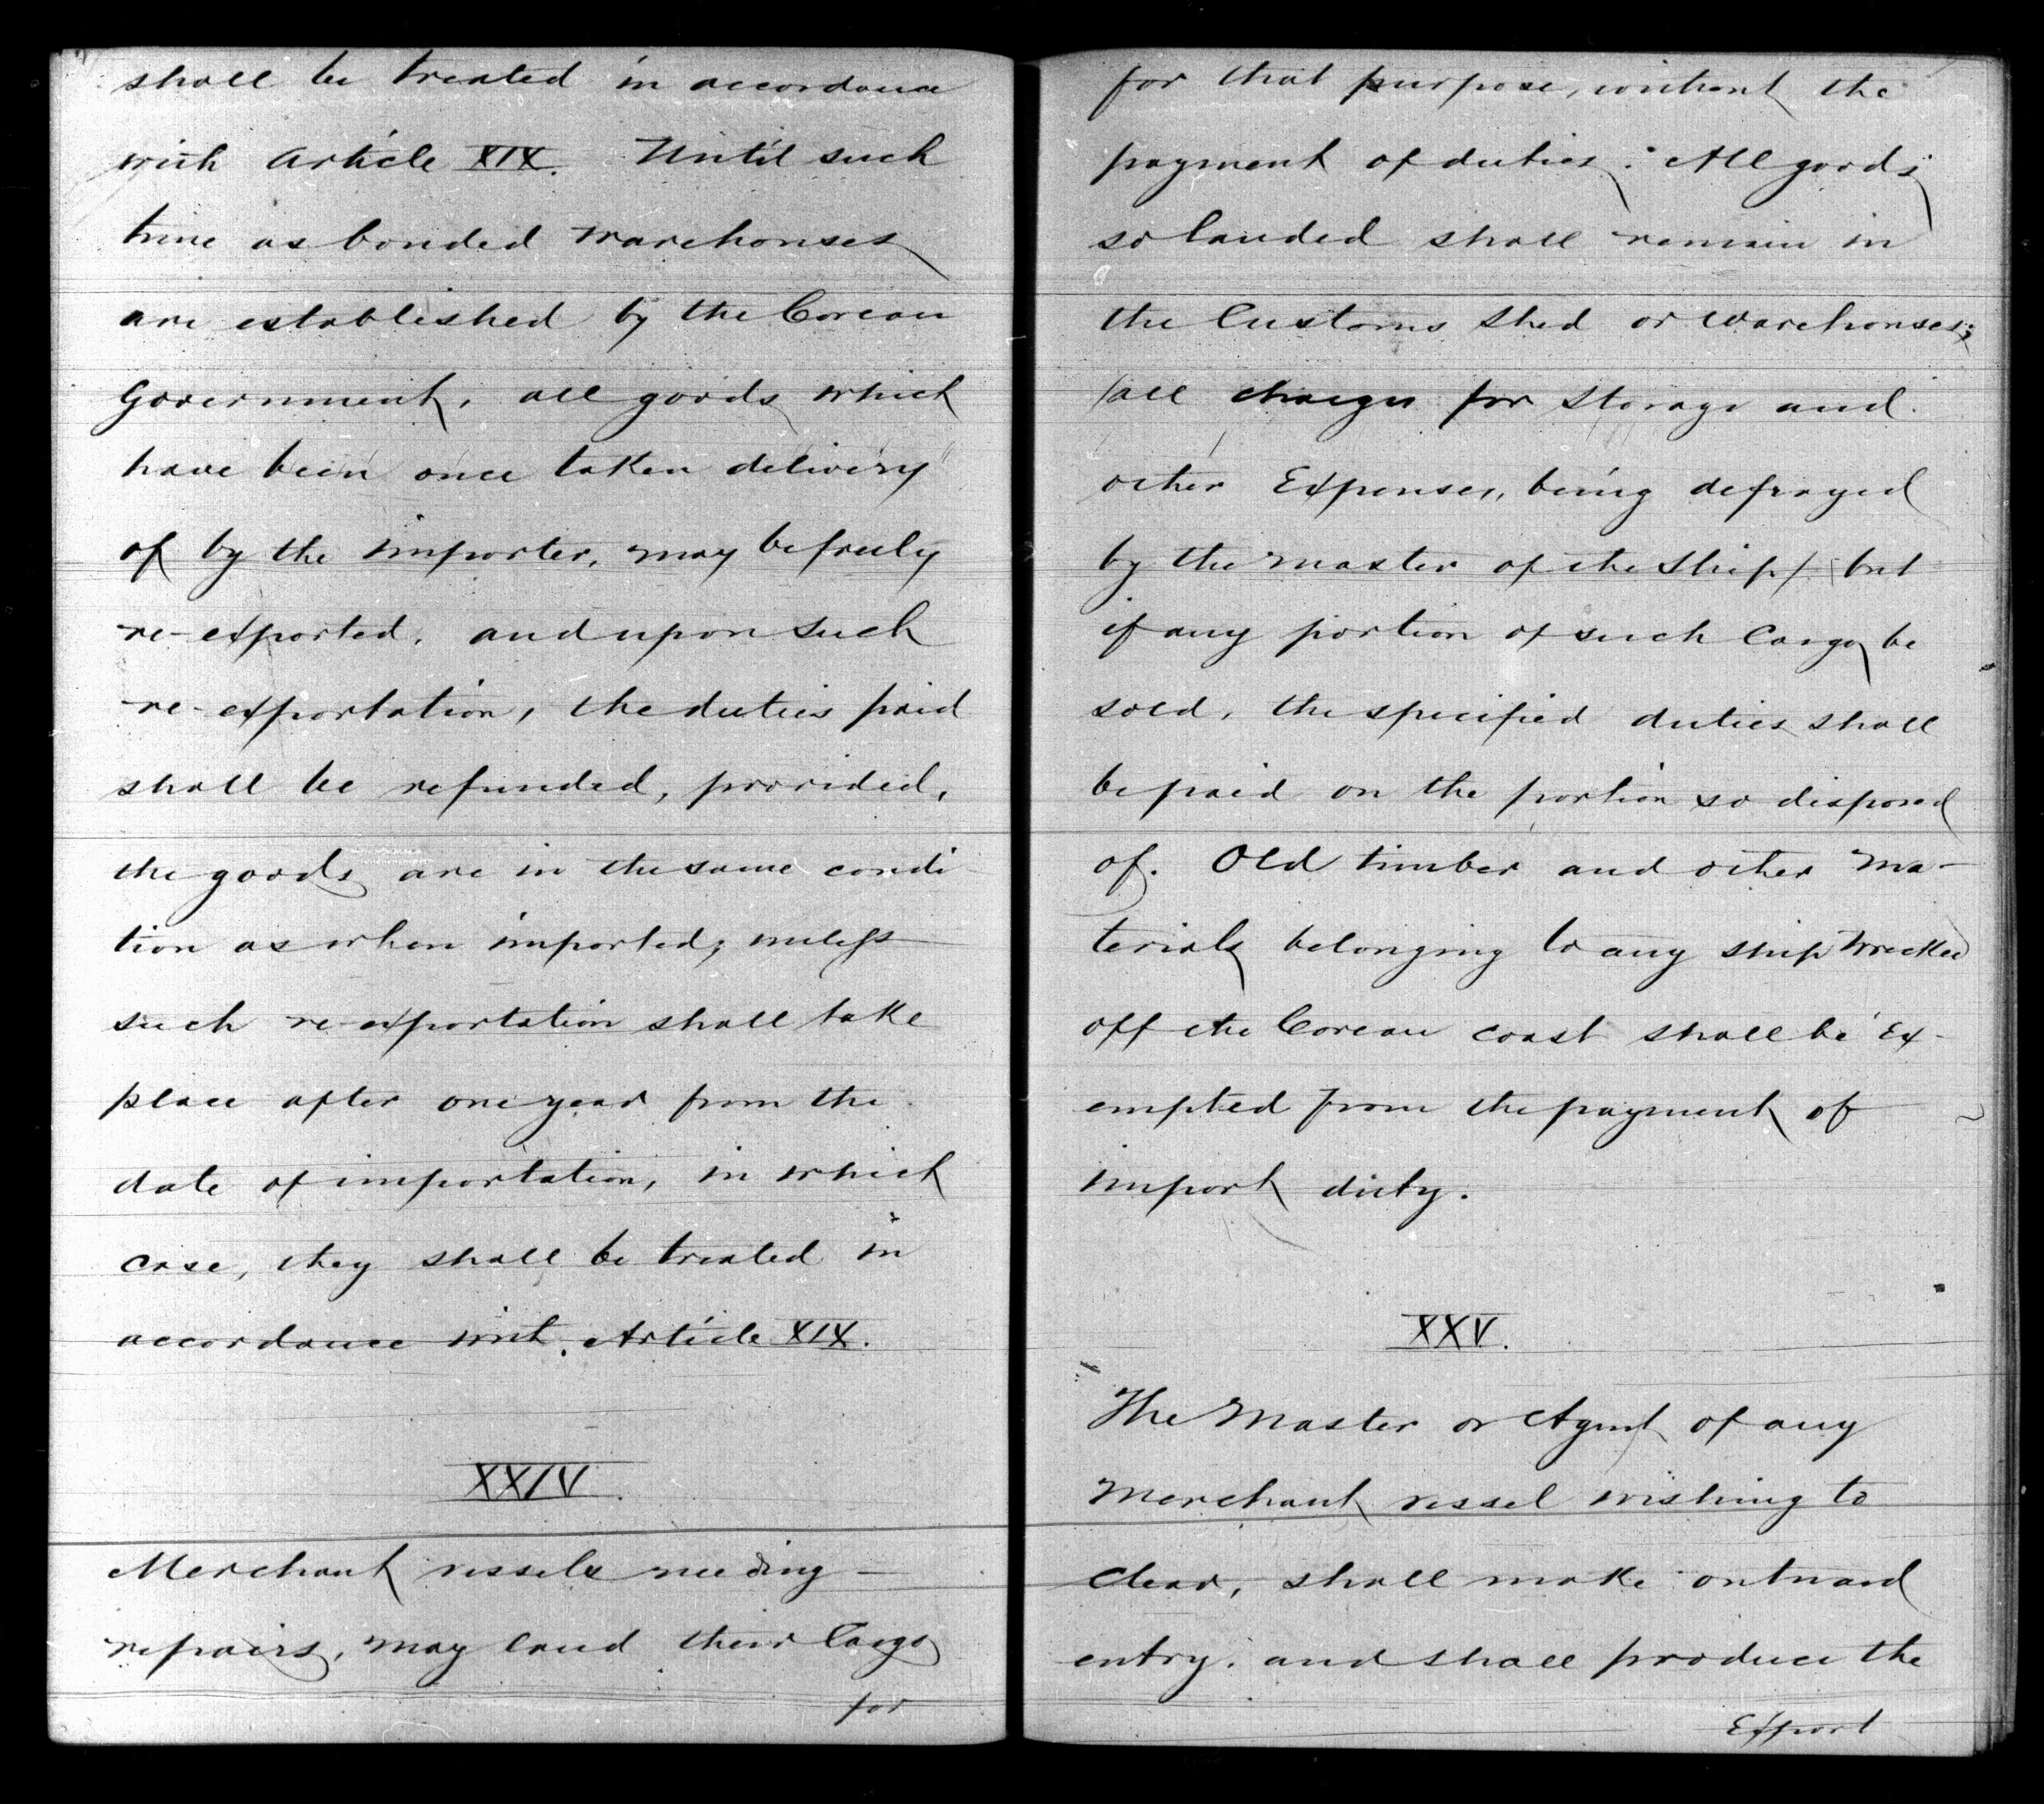 shall be treated in accordance
with Article XIX. Until such
time as bonded warehouses
are established by the Corean
Government, all goods which
have been once taken delivery
of by the importer, may be freely
re-exported, and upon such
re-exportation, the duties paid
shall be refunded, provided,
the goods are in the same condi
tion as when imported; unless
such re-exportation shall take
place after one year from the
date of importation, in which
case, they shall be treated in
accordance wit. Article XIX.
XXIV.
Merchant vessels needing
repairs, may land their Cargo
for
for that purpose, without the
payment of duties. All goods
so landed shall remain in
the Customs Shed or Warehouses;
(all charges for Storage and
other Expenses, being defrayed
by the Master of the Ship) but
if any portion of such Cargo be
sold, the specified duties shall
be paid on the portion so disposed
of. Old timber and other ma-
terials belonging to any ship wrecked
off the Corean coast shall be ex-
empted from the payment of
import duty.
XXV.
The Master or Agent of any
Merchant vessel wishing to
Clear, shall make outward
entry. and shall produce the
Export